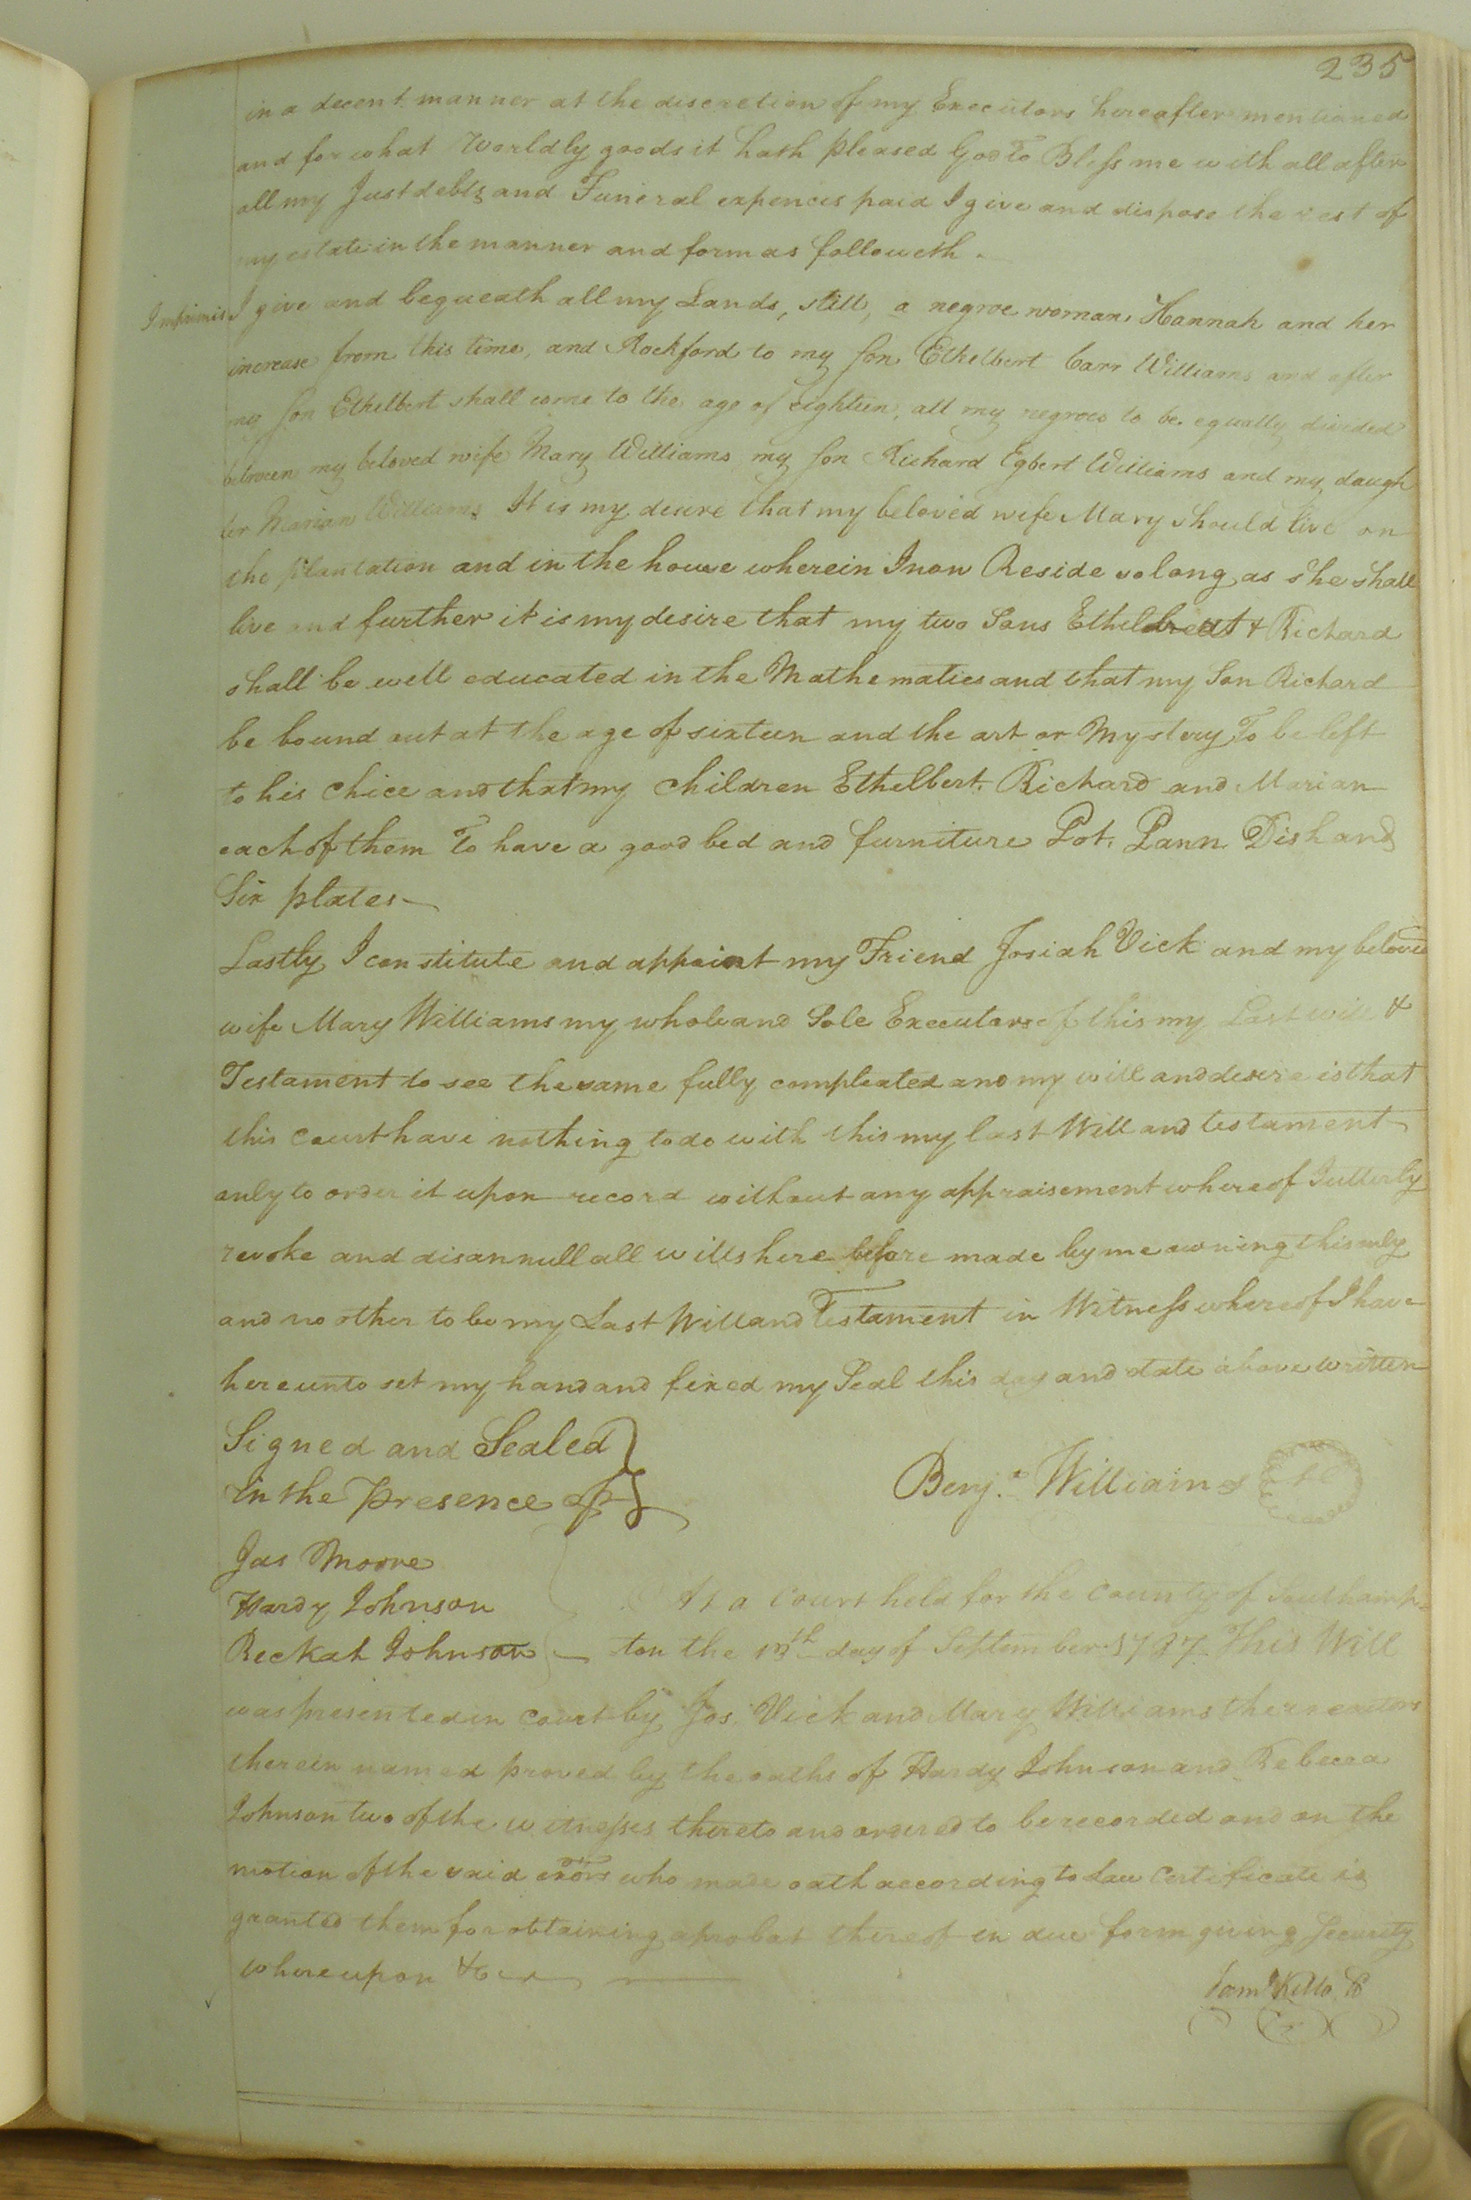 235
in a decent manner at the discretion of my Executors hereafter mentioned
and for what Worldly goods it hath pleased God To Bless me with all after
all my Just debts and Funeral expences paid I give and dispose the rest of
my estate in the manner and form as followeth.
Imprimis I give and bequeath all my Lands, still, a negroe woman, Hannah and her
increase from this time, and Rockford to my son Ethelbert Carr Williams and after
my son Ethelbert shall come to the age of eighteen, all my negroes to be equally divided
between my beloved wife Mary Williams my son Richard Egbert Williams and my daugh
ter Marian Williams It is my desire that my beloved wife Mary should live on
the plantation and in the house wherein I now Reside so long as she shall
live and further it is my desire that my two Sons & Richard
shall be well educated in the Mathematics and that my Son Richard
be bound out at the age of sixteen and the art or Mystery To be left
to his chice and that my children Ethelbert, Richard and Marian
each of them To have a good bed and furniture Pot, Pann Dish and
Six plates
Lastly I constitute and appoint my Friend Josiah Vick and my beloved
wife Mary Williams my whole and Sole Executors of this my Last will &
Testament to see the same fully compleated and my will and desire is that
this court have nothing to do with this my last Will and testament
only to order it upon record without any appraisement whereof I utterly
revoke and disannull all wills here before made by me owning this only
and no other to be my Last Will and Testament in Witness whereof I have
hereunto set my hand and fixed my Seal this day and date above written
Signed and Sealed
in the presence of
Benja. Williams
Jas Moore
Hardy Johnson
At a Court held for the County of Southamp-
Reckah Johnson
ton the 13th day of September 1797 This Will
was presented in court by Jos. Vick and Mary Williams the executors
therein named proved by the oaths of Hardy Johnson and Rebecca
Johnson two of the witnesses thereto and ordered to be recorded and on the
motion of the said exors who made oath according to Law Certificate is
granted them for obtaining a probat thereof in due form giving Security
whereupon &c
Saml Kello